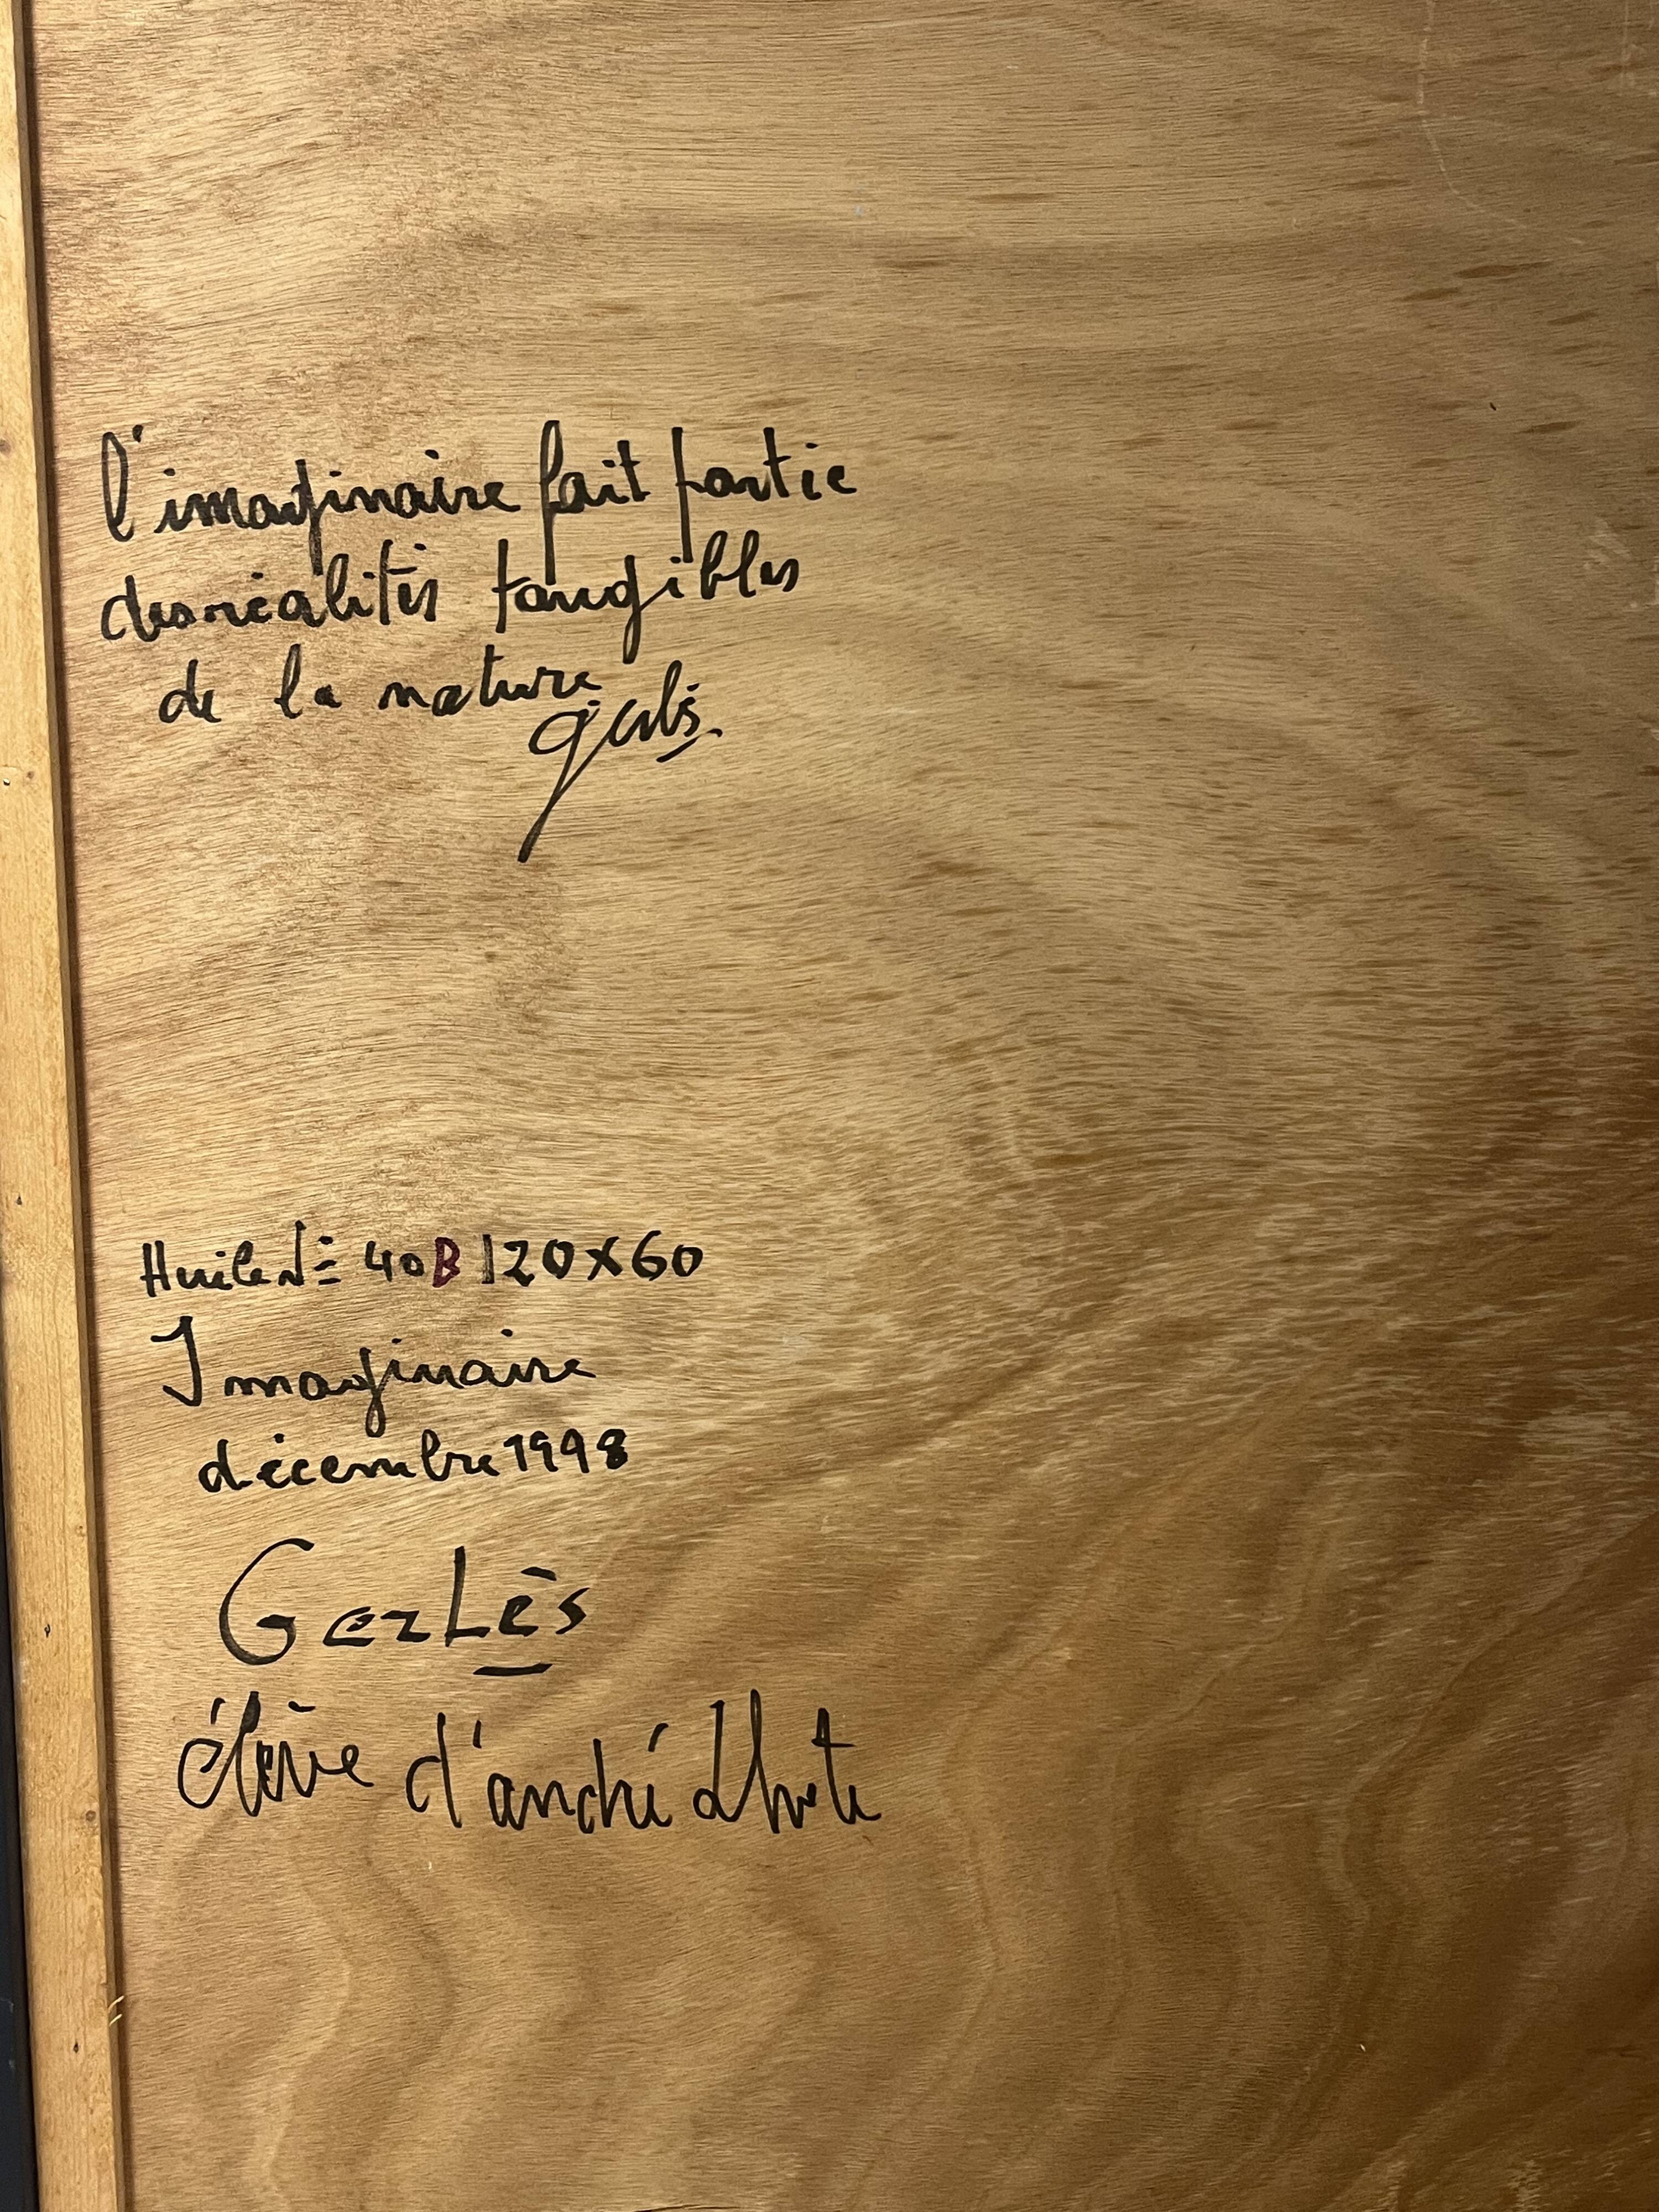 l'imaginaire fait partie
des réalités tangibles
de la nature
gerlès.
Huile N= 40B 120x60
Imaginaire
décembre 1998
GerLès
élève d'andré Lhote